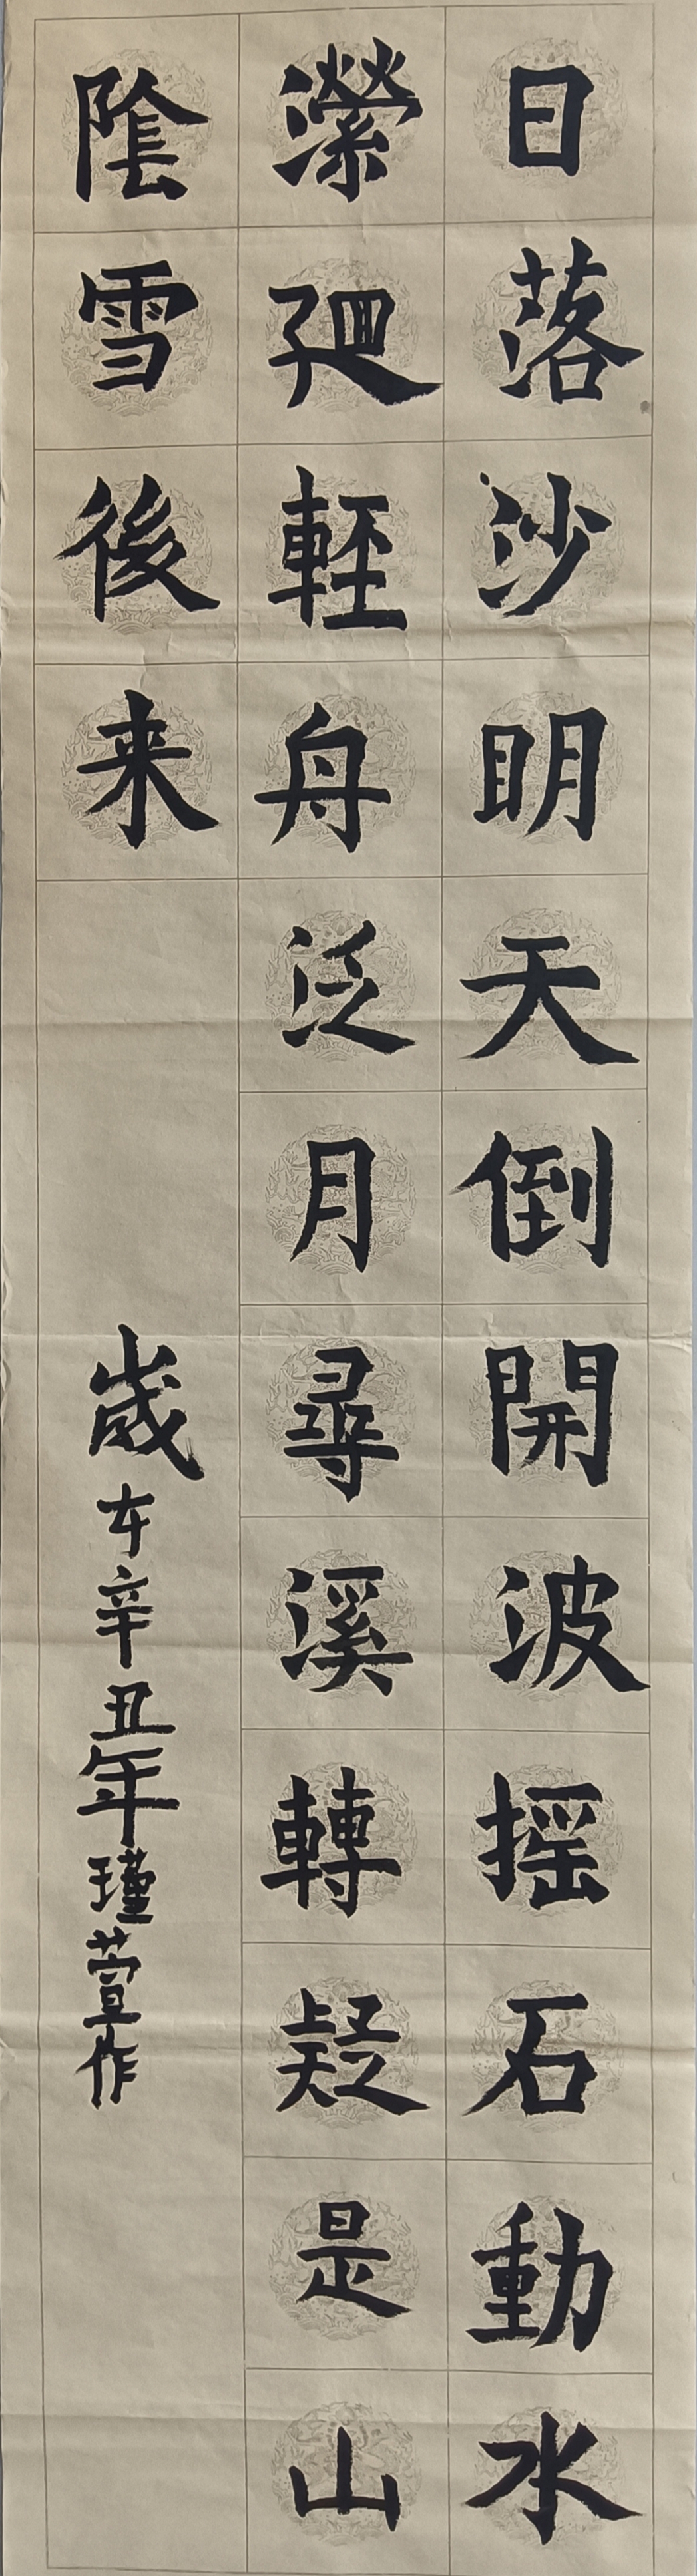 日落沙明天倒開波摇石動水
濚廻輕舟泛月尋溪轉疑是山
陰雪後来
歲在辛丑年瑾萱作